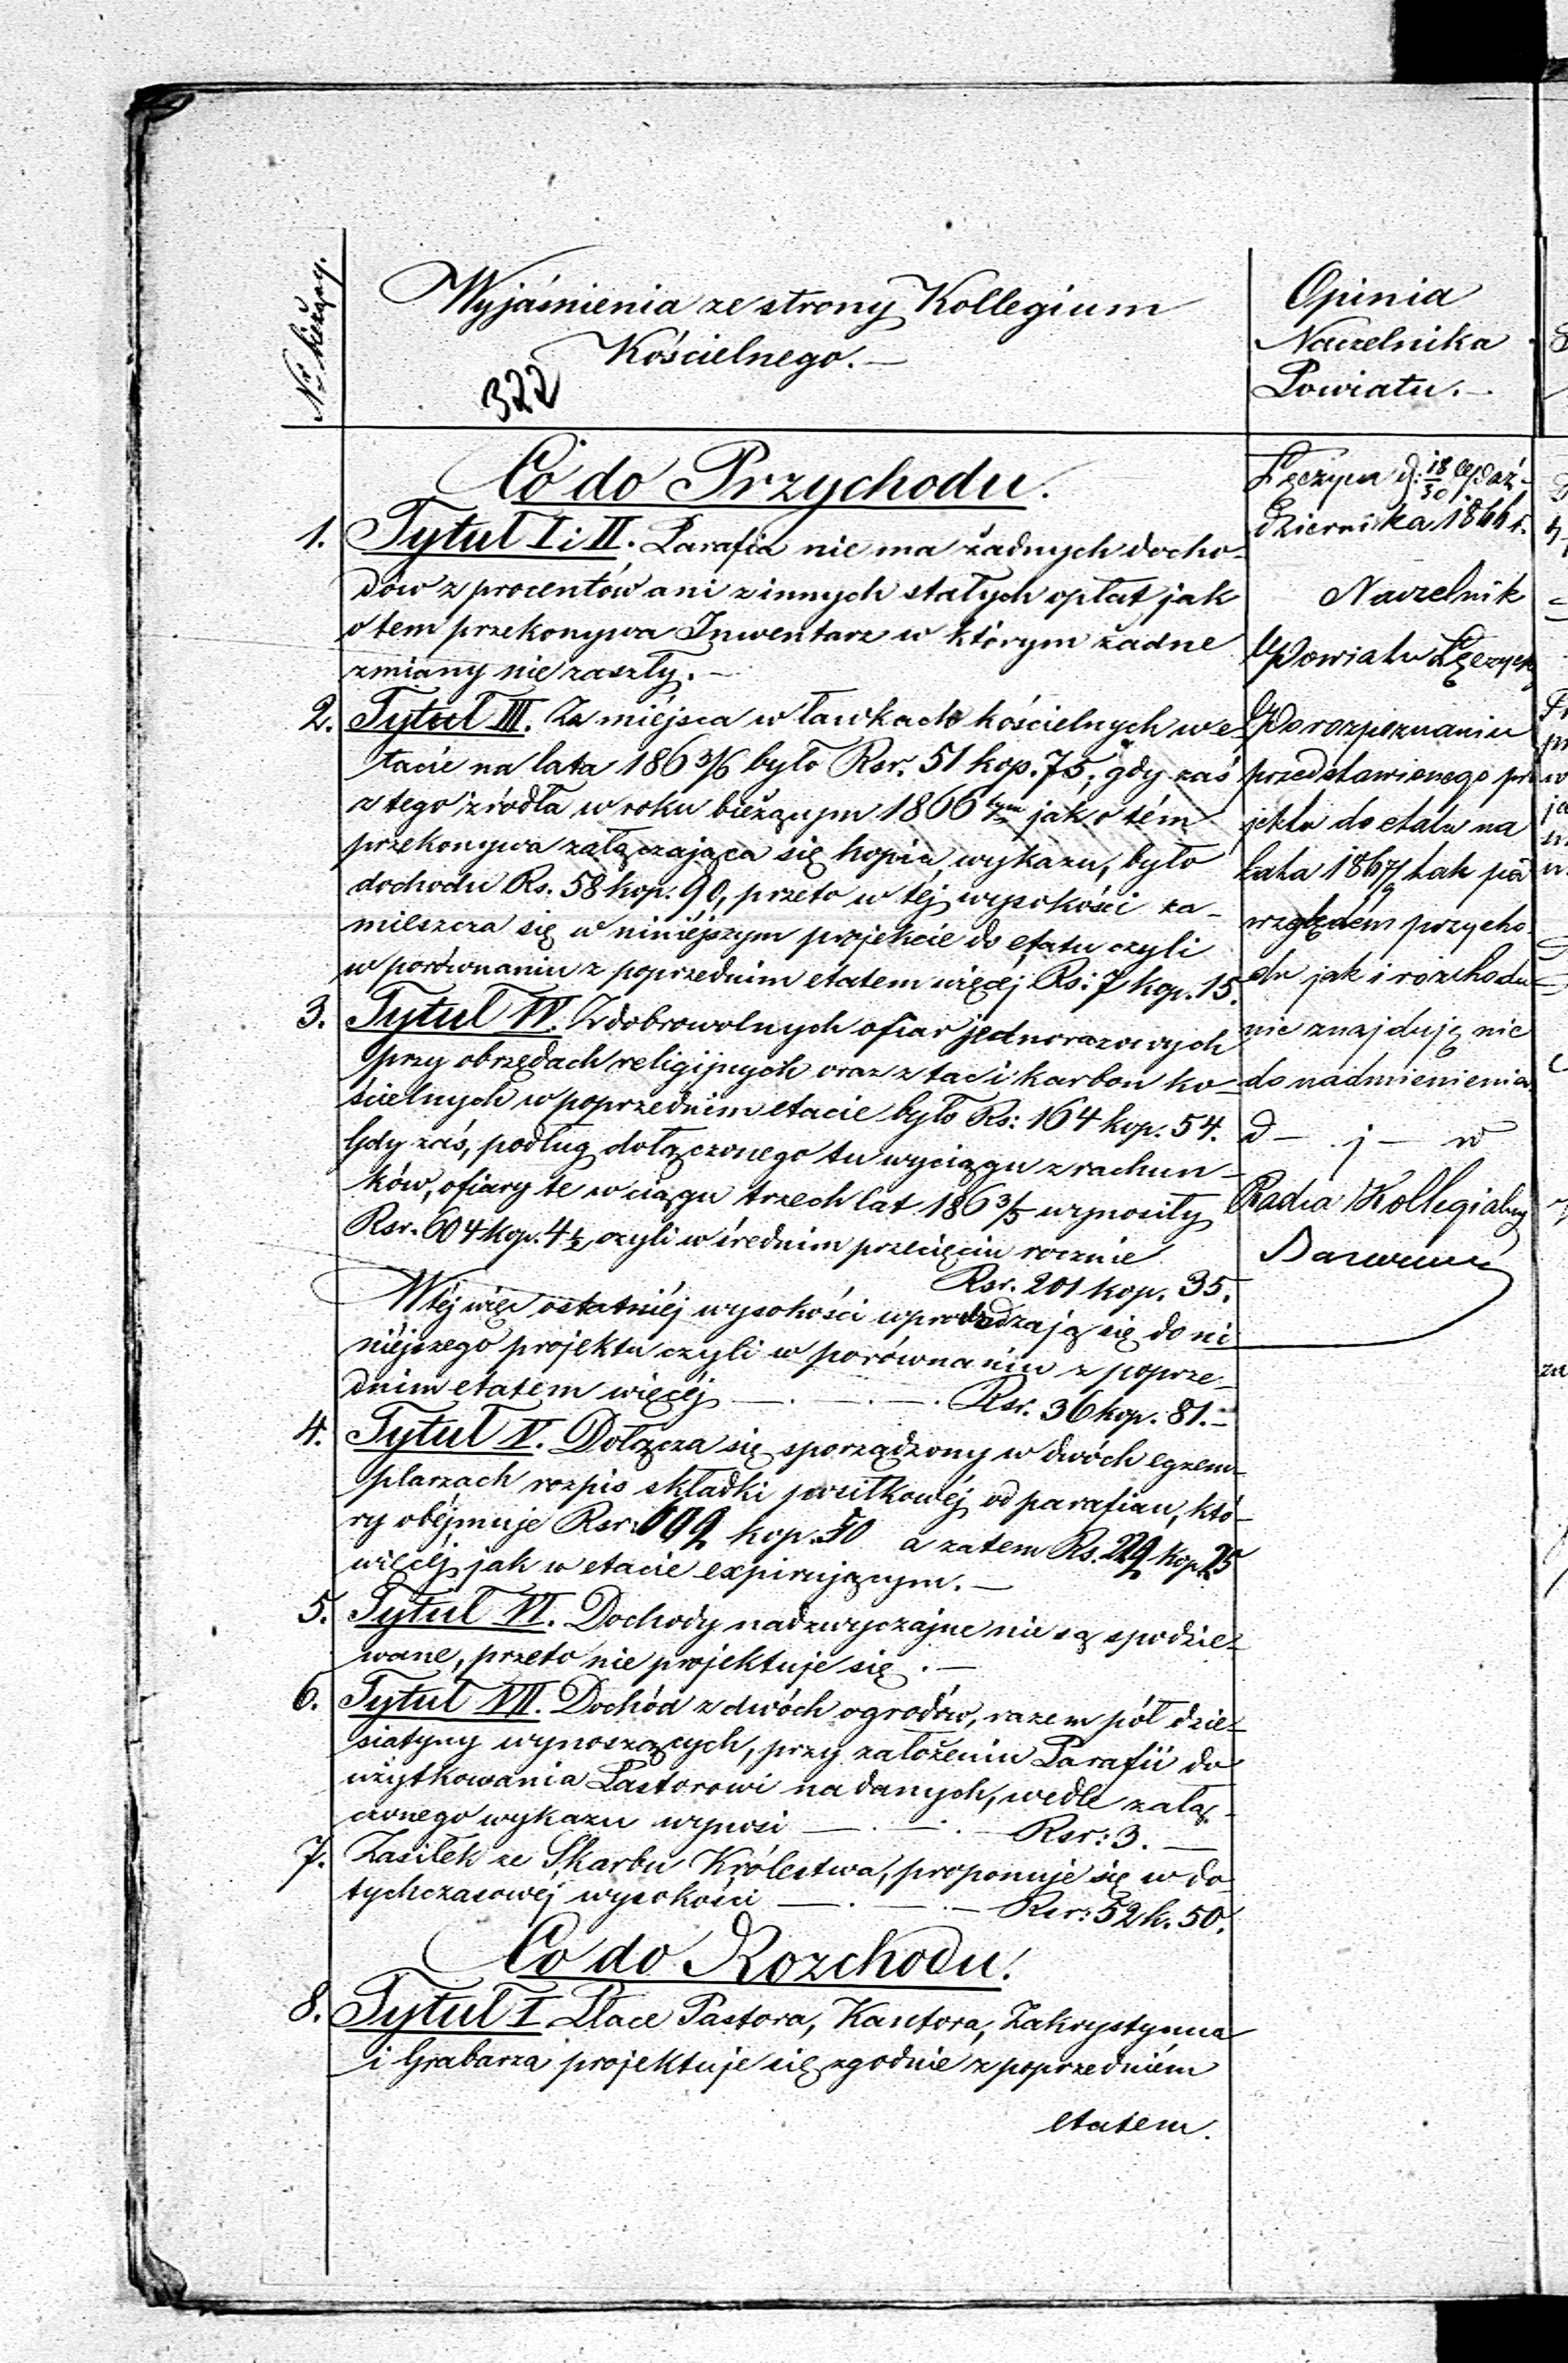 Nr bieżący.
Wyjaśnienia ze strony Kollegium
Kościelnego.—
322
Co do Przychodu.
1. Tytuł I i II. Parafia nie ma żadnych docho-
dów z procentów ani z innych stałych opłat jak
o tem przekonywa Inwentarz w którym żadne
zmiany nie zaszły.—
2. Tytuł III. Za miéjsca w ławkach kościelnych w e-
tacie na lata 1863/6 było Rsr. 51 kop. 75, gdy zaś
z tego źródła w roku bieżącym 1866tym jak o tém
przekonywa załączająca się kopia wykazu, było
dochodu Rs. 58 kop. 90, przeto w téj wysokości za-
mieszcza się w niniéjszym projekcie do etatu czyli
w porównaniu z poprzednim etatem więcéj Rs: 7 kop. 15.
3. Tytuł IV. Z dobrowolnych ofiar jednorazowych
przy obrzędach religijnych oraz z tac i karbon ko-
ścielnych w poprzednim etacie było Rs: 164 kop. 54.
Gdy zaś, podług dołączonego tu wyciągu z rachun-
ków, ofiary te w ciągu trzech lat 1863/5 wynosiły
Rsr. 604 kop. 4½ czyli w średnim przecięciu rocznie
Rsr. 201 kop. 35.
W téj więc ostatniéj wysokości wprowadzają się do ni
niéjszego projektu czyli w porównaniu z poprze-
dnim etatem więcéj —.—.—. Rsr. 36 kop. 81.—
4. Tytuł V. Dołącza się sporządzony w dwóch egzem-
plarzach rozpis składki posiłkowéj od parafian, któ-
ry obéjmuje Rsr: 699 kop. 50 a zatem Rs. 229 kop. 25
więcéj jak w etacie expirującym.—
5. Tytuł VI. Dochody nadzwyczajne nie są spodzie-
wane, przeto nie projektuje się.—
6. Tytuł VII. Dochód z dwóch ogrodów, razem pół dzie-
siatyny wynoszących, przy założeniu Parafii do
użytkowania Pastorowi nadanych, wedle załą-
czonego wykazu wynosi —.—.— Rsr: 3.—
7. Zasiłek ze Skarbu Królestwa, proponuje się w do-
tychczasowéj wysokości —.—.— Rsr: 52 k. 50.
Co do Rozchodu.
8. Tytuł I. Płace Pastora, Kantora, Zakrystyana
i Grabarza projektuje się zgodnie z poprzedniém
etatem.
Opinia
Naczelnika
Powiatu.—
Łęczyca d: 18/30 Paź-
dziernika 1866 r.
Naczelnik
Powiatu Łęczyck
Po rozpoznaniu
przedstawionego pro
jektu do etatu na
lata 1867/9 tak pod
względém przycho
du jak i rozchodu
nie znajduję nic
do nadmienienia
Radca Kollegialny